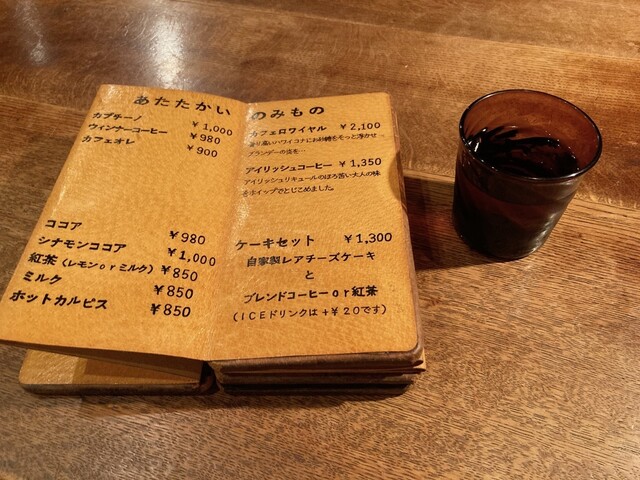 あたたかい のみもの
カプチーノ ￥1,000
ウィンナーコーヒー ￥980
カフェオレ ￥900
ココア ￥980
シナモンココア ￥1,000
紅茶（レモンorミルク） ￥850
ミルク ￥850
ホットカルピス ￥850
カフェロワイヤル ￥2,100
香り高いハワイコナにお砂糖をそっと浮かせ…
ブランデーの炎を…
アイリッシュコーヒー ￥1,350
アイリッシュリキュールのほろ苦い大人の味
をホイップでとじこめました。
ケーキセット ￥1,300
自家製レアチーズケーキ
と
ブレンドコーヒーor紅茶
（ICEドリンクは＋￥20です）